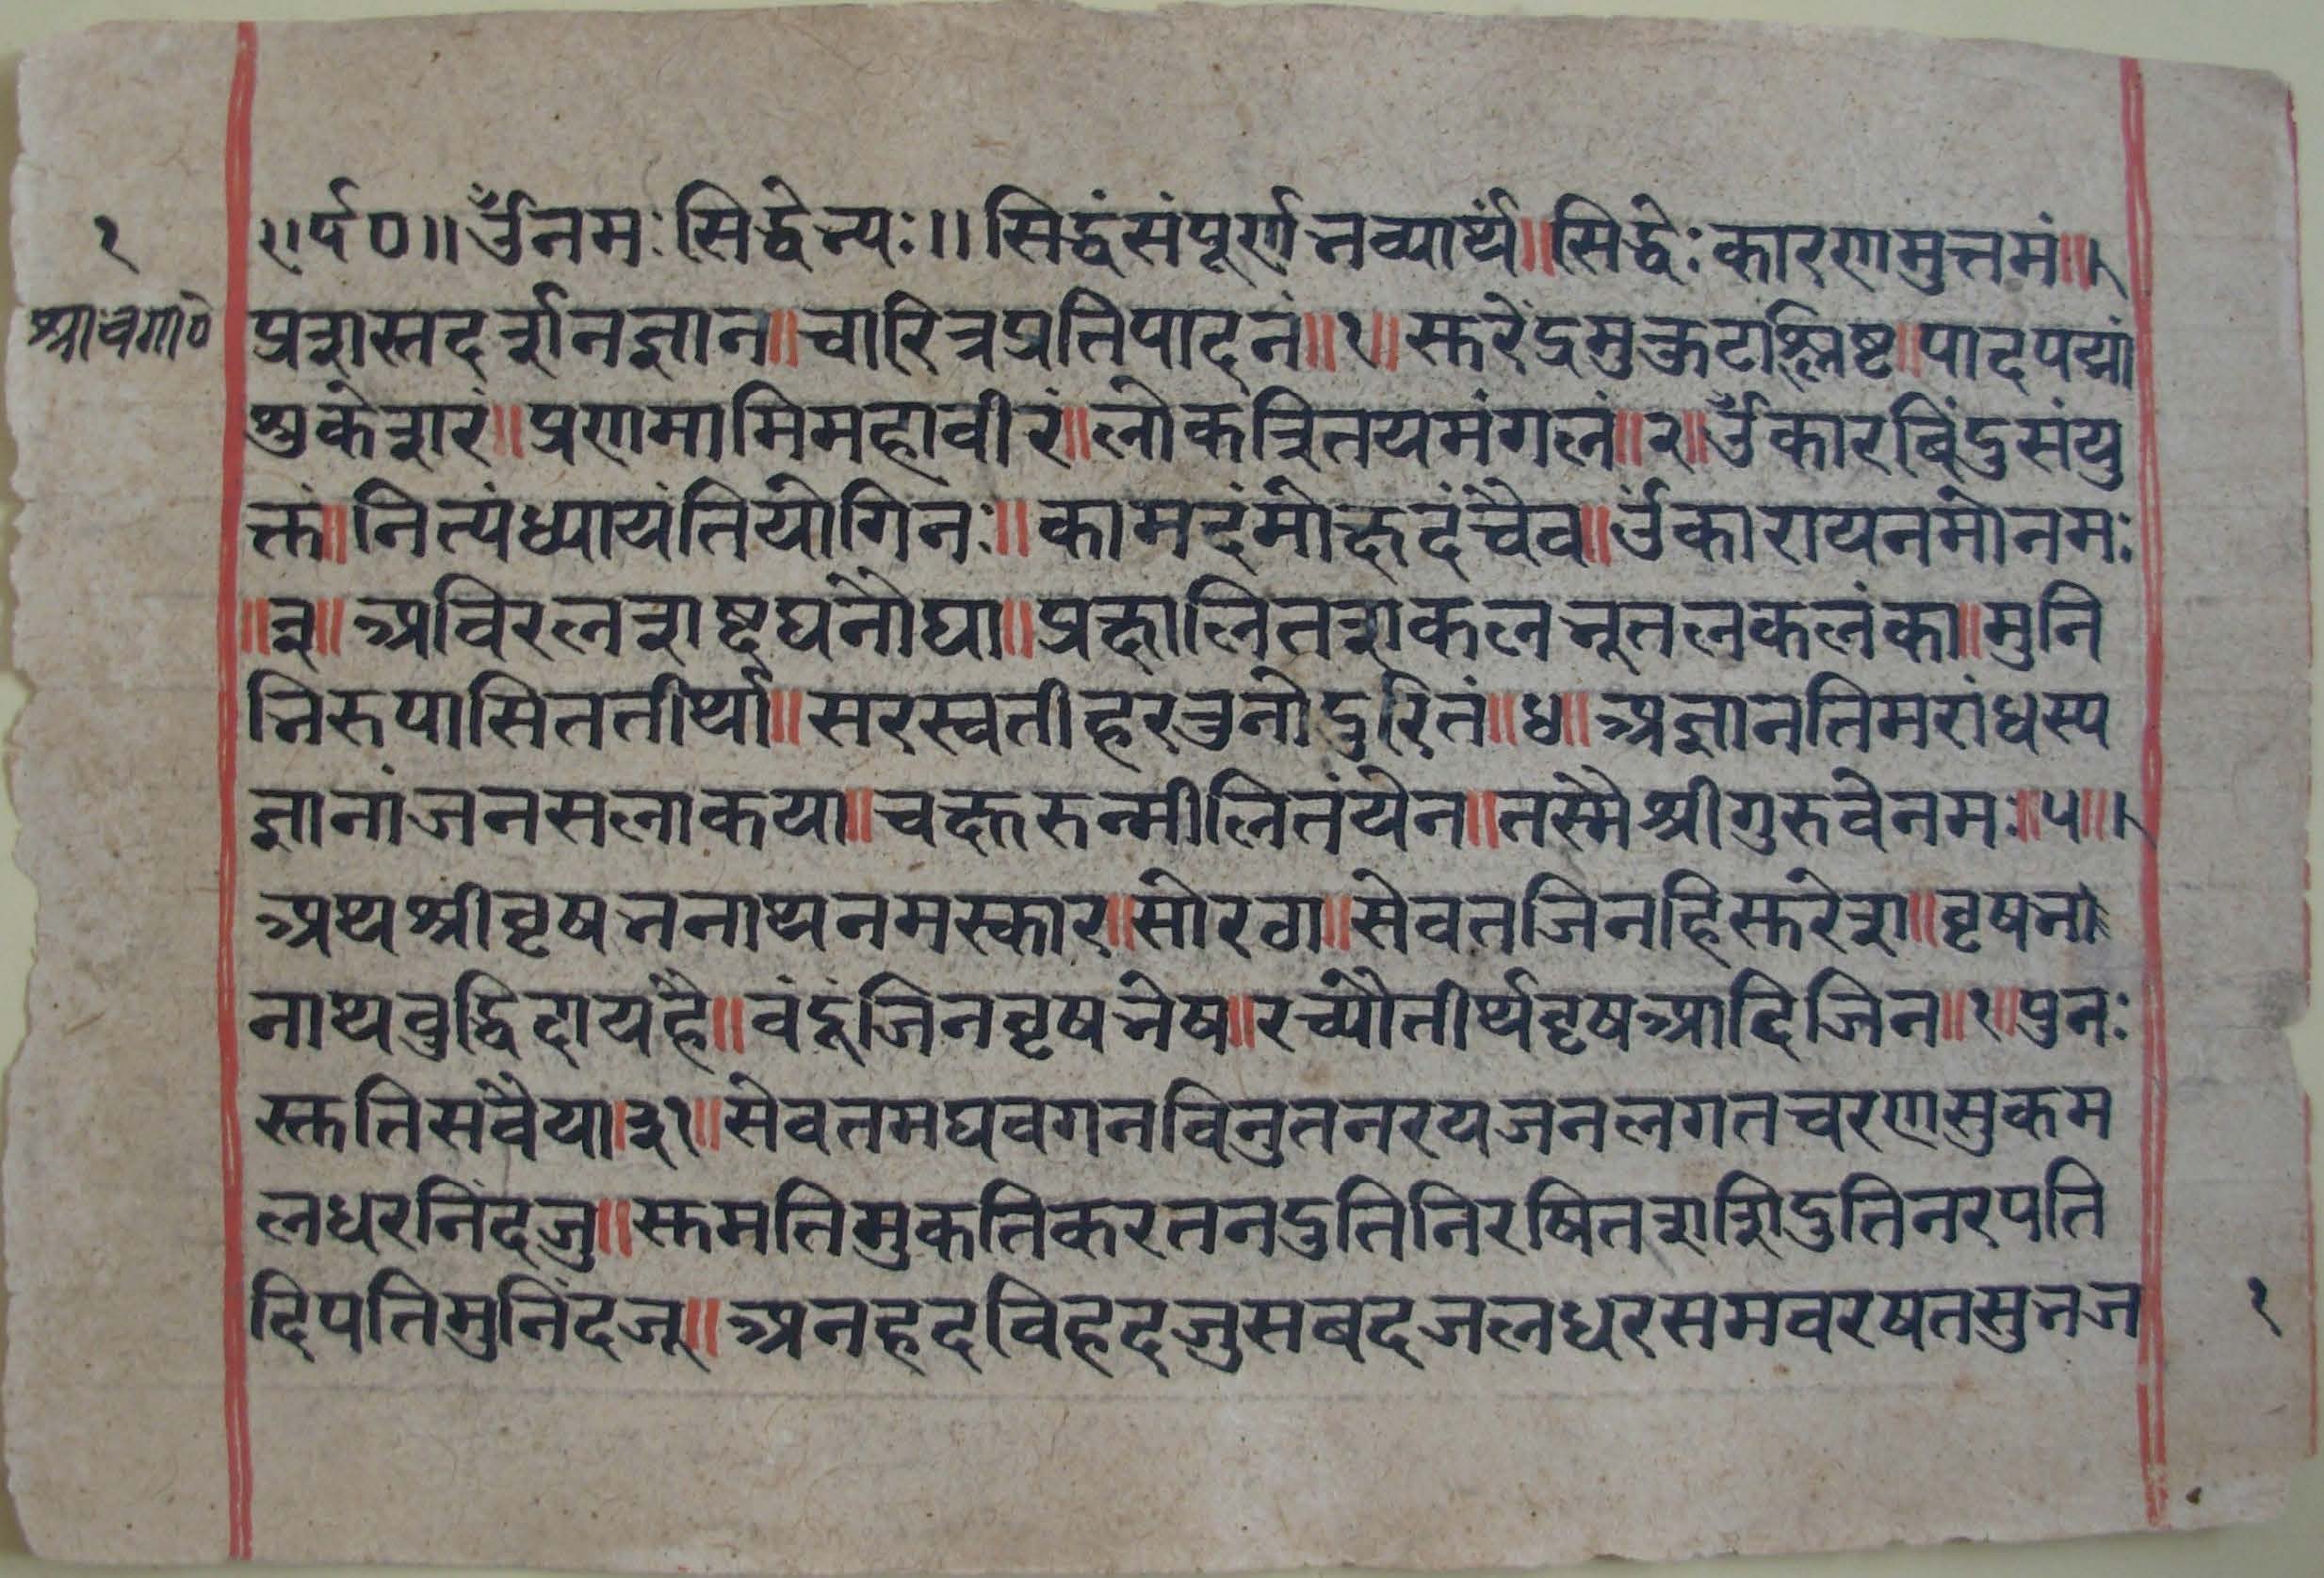 १
श्रावगा०
॥र्ष०॥ ॐनमः सिद्धेभ्यः॥ सिद्धंसंपूर्णभव्यार्थं॥सिद्धेः कारणमुत्तमं॥
प्रशस्तदर्शनज्ञान॥चारित्रप्रतिपादनं॥१॥सुरेंद्रमुकुटाश्लिष्ट॥पादपद्मां
शुकेशरं॥प्रणमामिमहावीरं॥लोकत्रितयमंगलं॥२॥ॐकारबिंदुसंयु
क्तं॥नित्यंध्यायंतियोगिनः॥कामदंमोक्षदंचैव॥ॐकारायनमोनमः
॥३॥अविरलशष्टघनौघा॥प्रक्षालितशकलभूतलकलंका॥मुनि
भिरुपासिततीर्था॥सरस्वतीहरउनोदुरितं॥४॥अज्ञानतिमरांधस्य
ज्ञानांजनसलाकया॥चक्षुरुन्मीलितंयेन॥तस्मैश्रीगुरुवेनमः॥५॥
अथश्रीवृषभनाथनमस्कार॥सोरठा॥सेवतजिनहिसुरेश॥वृषभ
नाथबुद्धिदायहै॥वंदूंजिनवृषभेष॥रच्यौतीर्थवृषआदिजिन॥१॥पुनः
स्तुतिसवैया॥३१॥सेवतमघवगनविनुतनरयजनलगतचरणसुकम
लधरनिंदजु॥सुमतिमुकतिकरतनदुतिनिरषितशशिदुतिनरपति
दिपतिमुनिंदजू॥अनहदविहदजुसबदजलधरसमवरषतसुभज
१